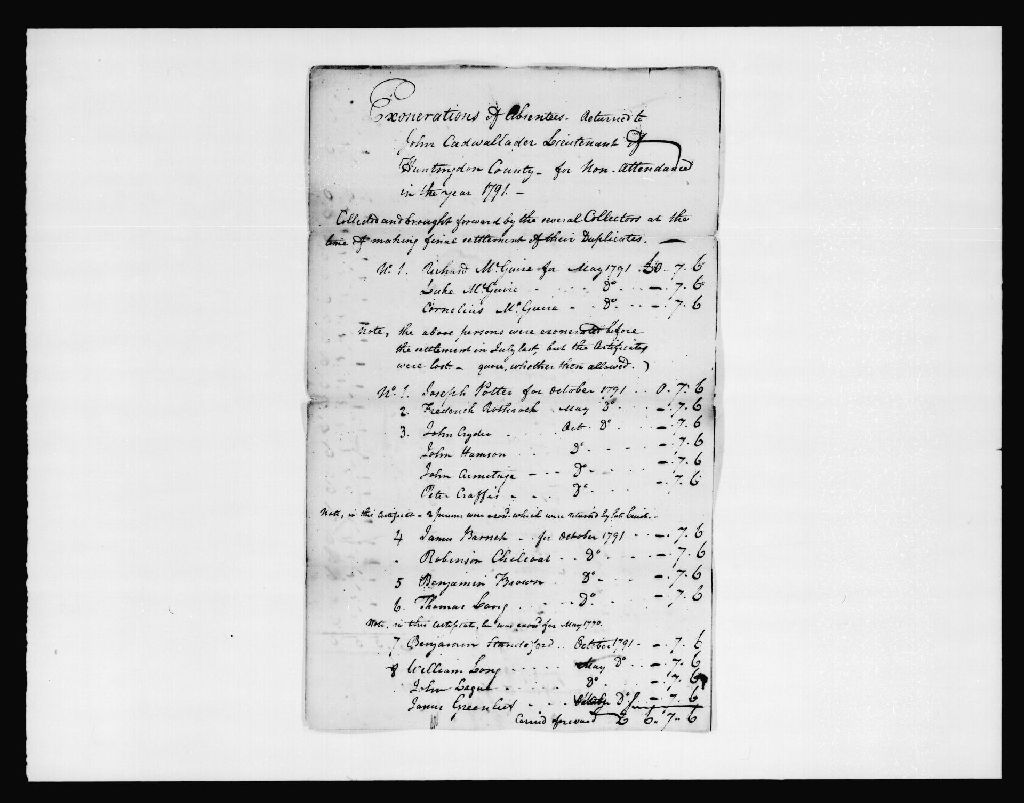 Exonerations of Absentees. Returned to
John Cadwallader Lieutenant of
Huntingdon County - for Non-Attendance
in the year 1791. -
Collected and brought forward by the several Collectors at the
time of making final settlement of their Duplicates. —
No. 1. Richard McGuire for May 1791 £0. 7. 6
Luke McGuire - Do - . 7. 6
Cornelius McGuire - Do. - . 7. 6
Note, the above persons were exonerated before
the settlement in July last, but the Certificates
were lost - quere, whether then allowed.)
No. 1. Joseph Potter for October 1791 .. 0. 7. 6
2. Frederick Rothrock May Do - . 7. 6
3. John Cryder Oct. Do - . 7. 6
John Hamson Do - . 7. 6
John Armitage - - - Do - . 7. 6
Peter Craffis - - Do - . 7. 6
Note, in this Certificate - 2 were exond. which were returned by
4 James Barrick - for October 1791 - . 7. 6
. Robinson Chilcoat - Do - - . 7. 6
5 Benjamin Brown Do - - . 7. 6
6. Thomas Long Do. - . 7. 6
Note, in this Certificate, he was exond for May 1790.
7 Benjamin Standeford .. October 1791 - . 7. 6
8 William Long May Do - . 7. 6
John Do - . 7. 6
James Greenlief Do - . 7. 6
Carried forward £ 6. 7. 6